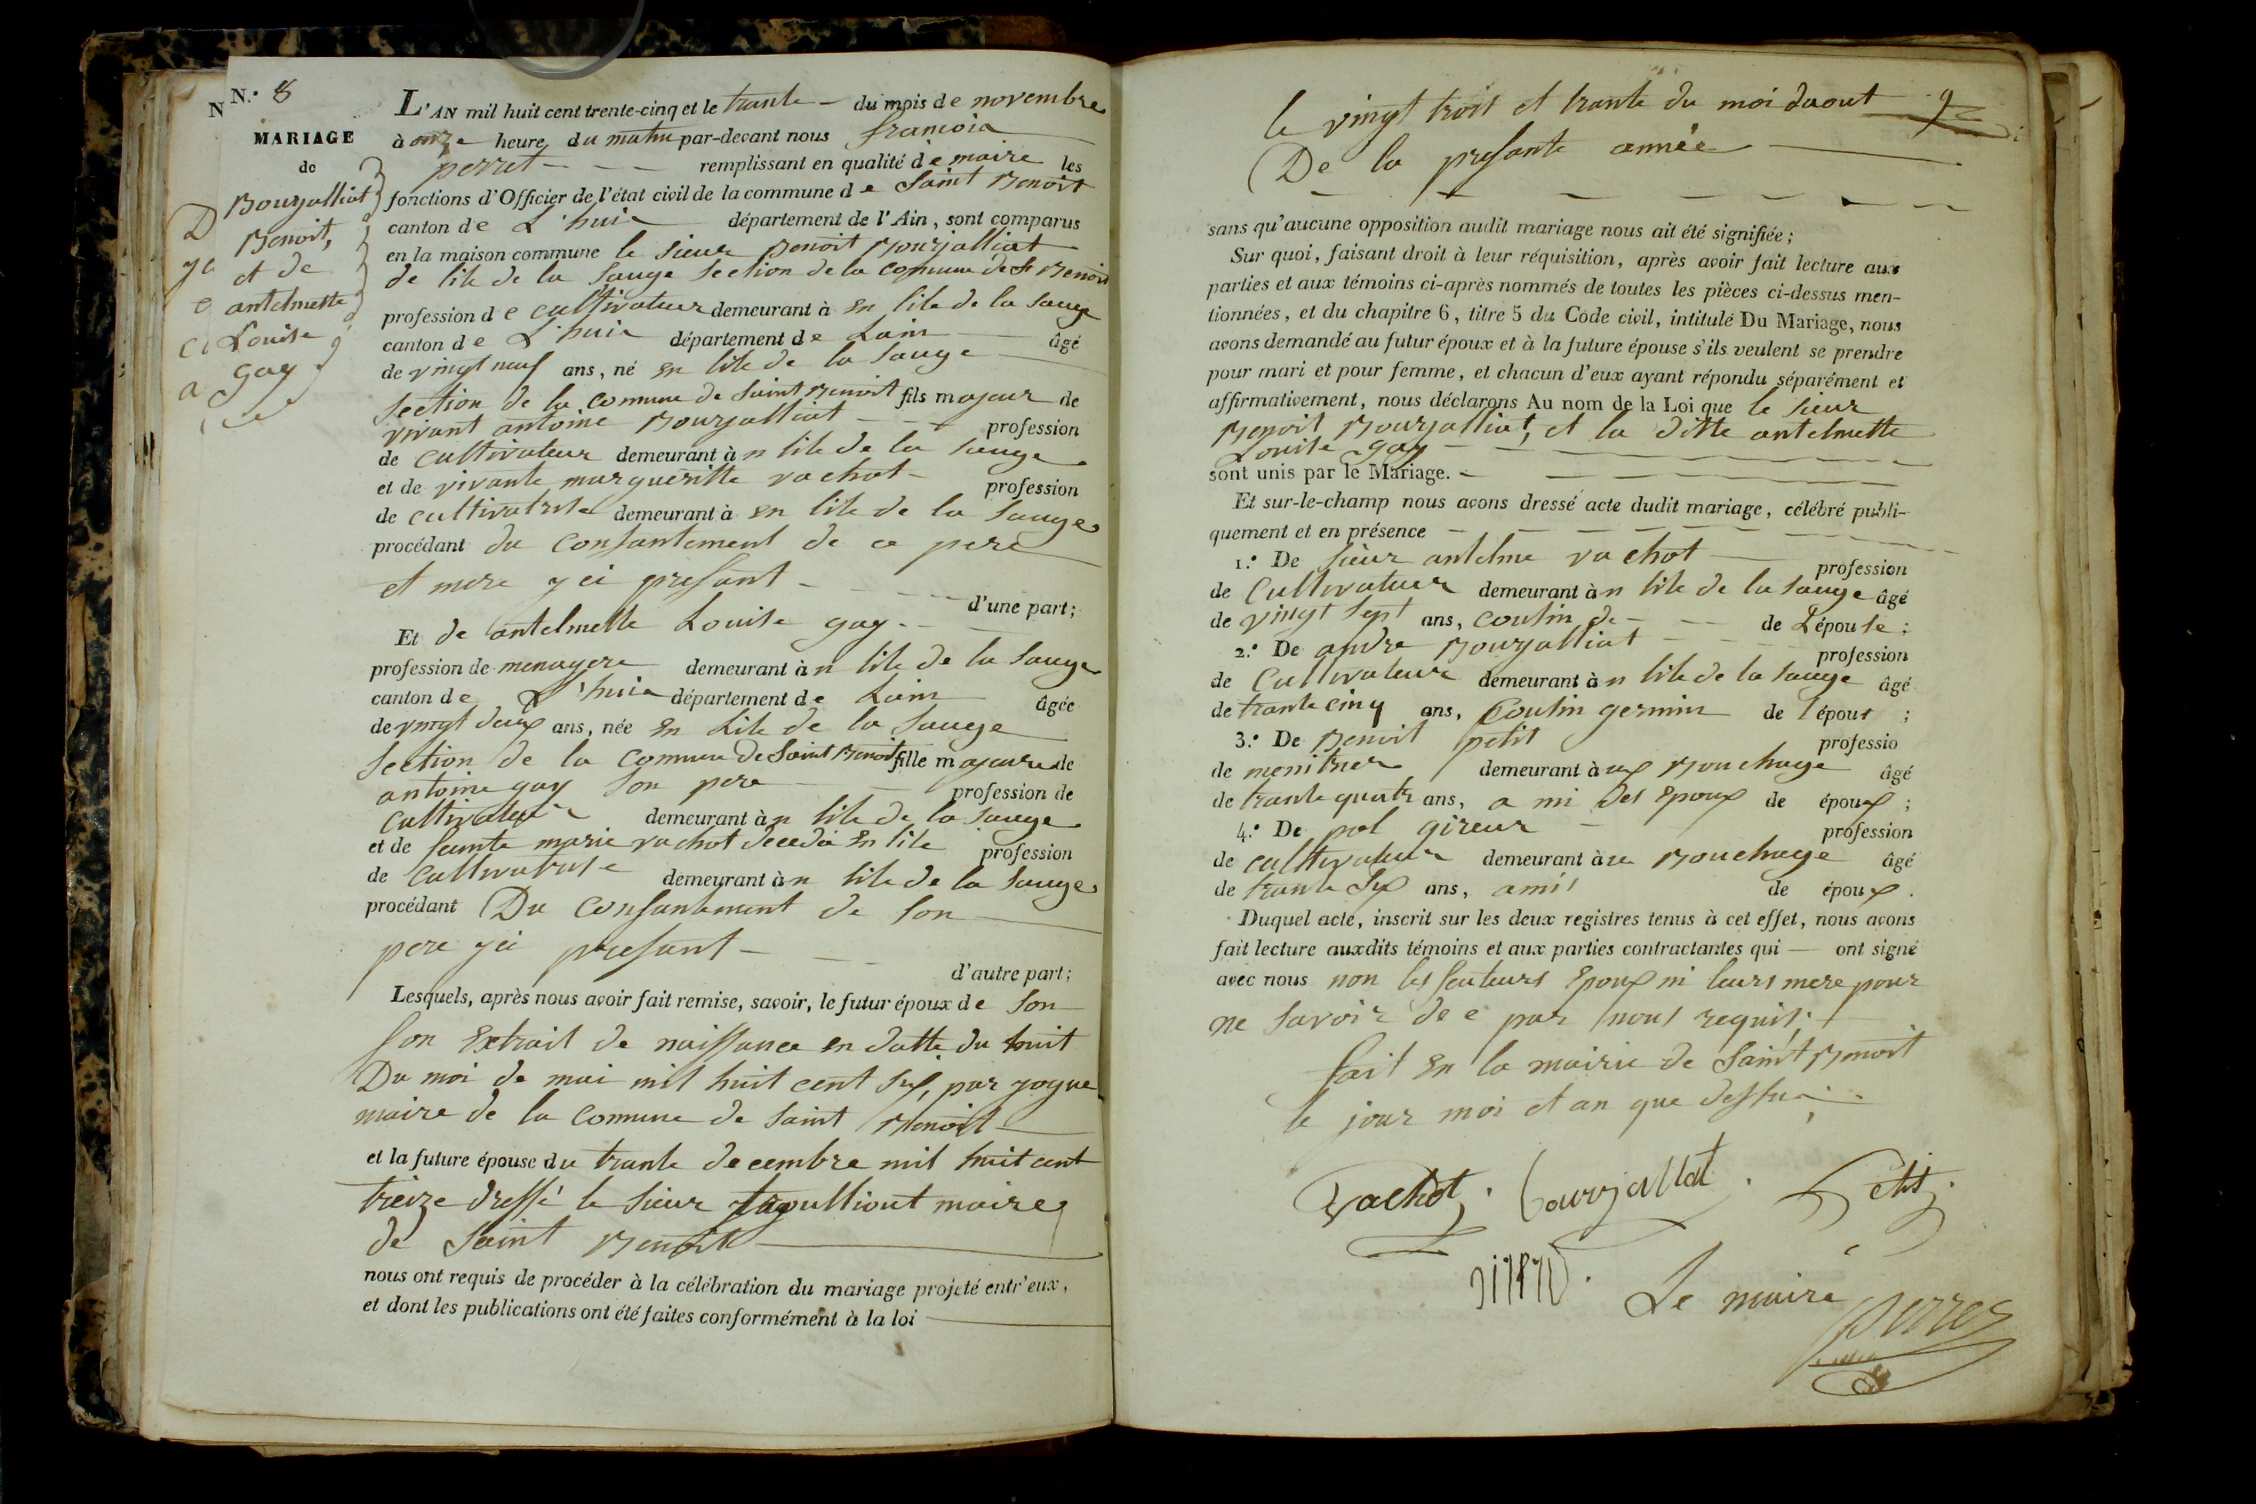 N.º 8
N
MARIAGE
de
Bourjalliat
Benoit,
et de
antelmette
Louise
gay
L'AN mil huit cent trente-cinq et le trante du mois de novembre
à onze heure du matin par-devant nous francoia
perret remplissant en qualité de maire les
fonctions d'Officier de l'état civil de la commune de Saint Benoit
canton de L'huia département de l'Ain, sont comparus
en la maison commune le sieur Benoit Bourjalliat
de lile de la sauge section de la comune de St Benoit
profession de cultivateur demeurant à en lile de la sauge
canton de L'huia département de Lain âgé
de vingt neuf ans, né en lile de la sauge
section de la commune de saint Benoit fils majeur de
vivant antoine Bourjalliat profession
de cultivateur demeurant à n lile de la sauge
et de vivante margueritte vachot profession
de cultivatrise demeurant à en lile de la sauge
procédant du consantement de ce pere
et mere yci presant
d'une part;
Et de antelmette Louise gay
profession de menagere demeurant à n lile de la sauge
canton de L'huia département de Lain âgée
de vingt deux ans, née en Lile de la sauge
section de la commune de Saint Benoit fille majeure de
antoine gay son pere profession de
cultivateur demeurant à n lile de la sauge
et de feunte marie vachot decedée en lile profession
de cultivatrise demeurant à n lile de la sauge
procédant Du consantement de son
pere yci presant
d'autre part;
Lesquels, après nous avoir fait remise, savoir, le futur époux de son
son extrait de naissance en datte du huit
Du moi de mai mil huit cent six, par jogue
maire de la comune de saint Benoit
et la future épouse du trante decembre mil huit cent
treize dressé le sieur maire
de Saint Benoit
nous ont requis de procéder à la célébration du mariage projeté entr'eux,
et dont les publications ont été faites conformément à la loi
le vingt trois et trante du moi daout 9
De la presante année
sans qu'aucune opposition audit mariage nous ait été signifiée;
Sur quoi, faisant droit à leur réquisition, après avoir fait lecture aux
parties et aux témoins ci-après nommés de toutes les pièces ci-dessus men-
tionnées, et du chapitre 6, titre 5 du Code civil, intitulé Du Mariage, nous
avons demandé au futur époux et à la future épouse s'ils veulent se prendre
pour mari et pour femme, et chacun d'eux ayant répondu séparément et
affirmativement, nous déclarons Au nom de la Loi que le sieur
Benoit Bourjalliat, et la ditte antelmette
Louise gay
sont unis par le Mariage.
Et sur-le-champ nous avons dressé acte dudit mariage, célébré publi-
quement et en présence
1.º De sieur antelme vachot profession
de Cultivateur demeurant à n lile de la sauge âgé
de vingt sept ans, cousin de de Lépouse;
2.º De andre Bourjalliat profession
de Cultivateur demeurant à n lile de la sauge âgé
de trante cinq ans, Cousin germin de l'épous;
3.º De Benoit petit professio
de menitrier demeurant à ux Bouchage âgé
de trante quatr ans, a mi des epoux de époux;
4.º De pol gireur profession
de cultivateur demeurant à u Bouchage âgé
de trante six ans, amis de époux.
Duquel acte, inscrit sur les deux registres tenus à cet effet, nous avons
fait lecture auxdits témoins et aux parties contractantes qui — ont signé
avec nous non les feuteurs epoux ni leurs mere pour
ne savoir de e par nous requis;
fait en la mairie de Saint Benoit
le jour moi et an que dessua
Vachot. bourjallat. Petit.
Le maire
perret